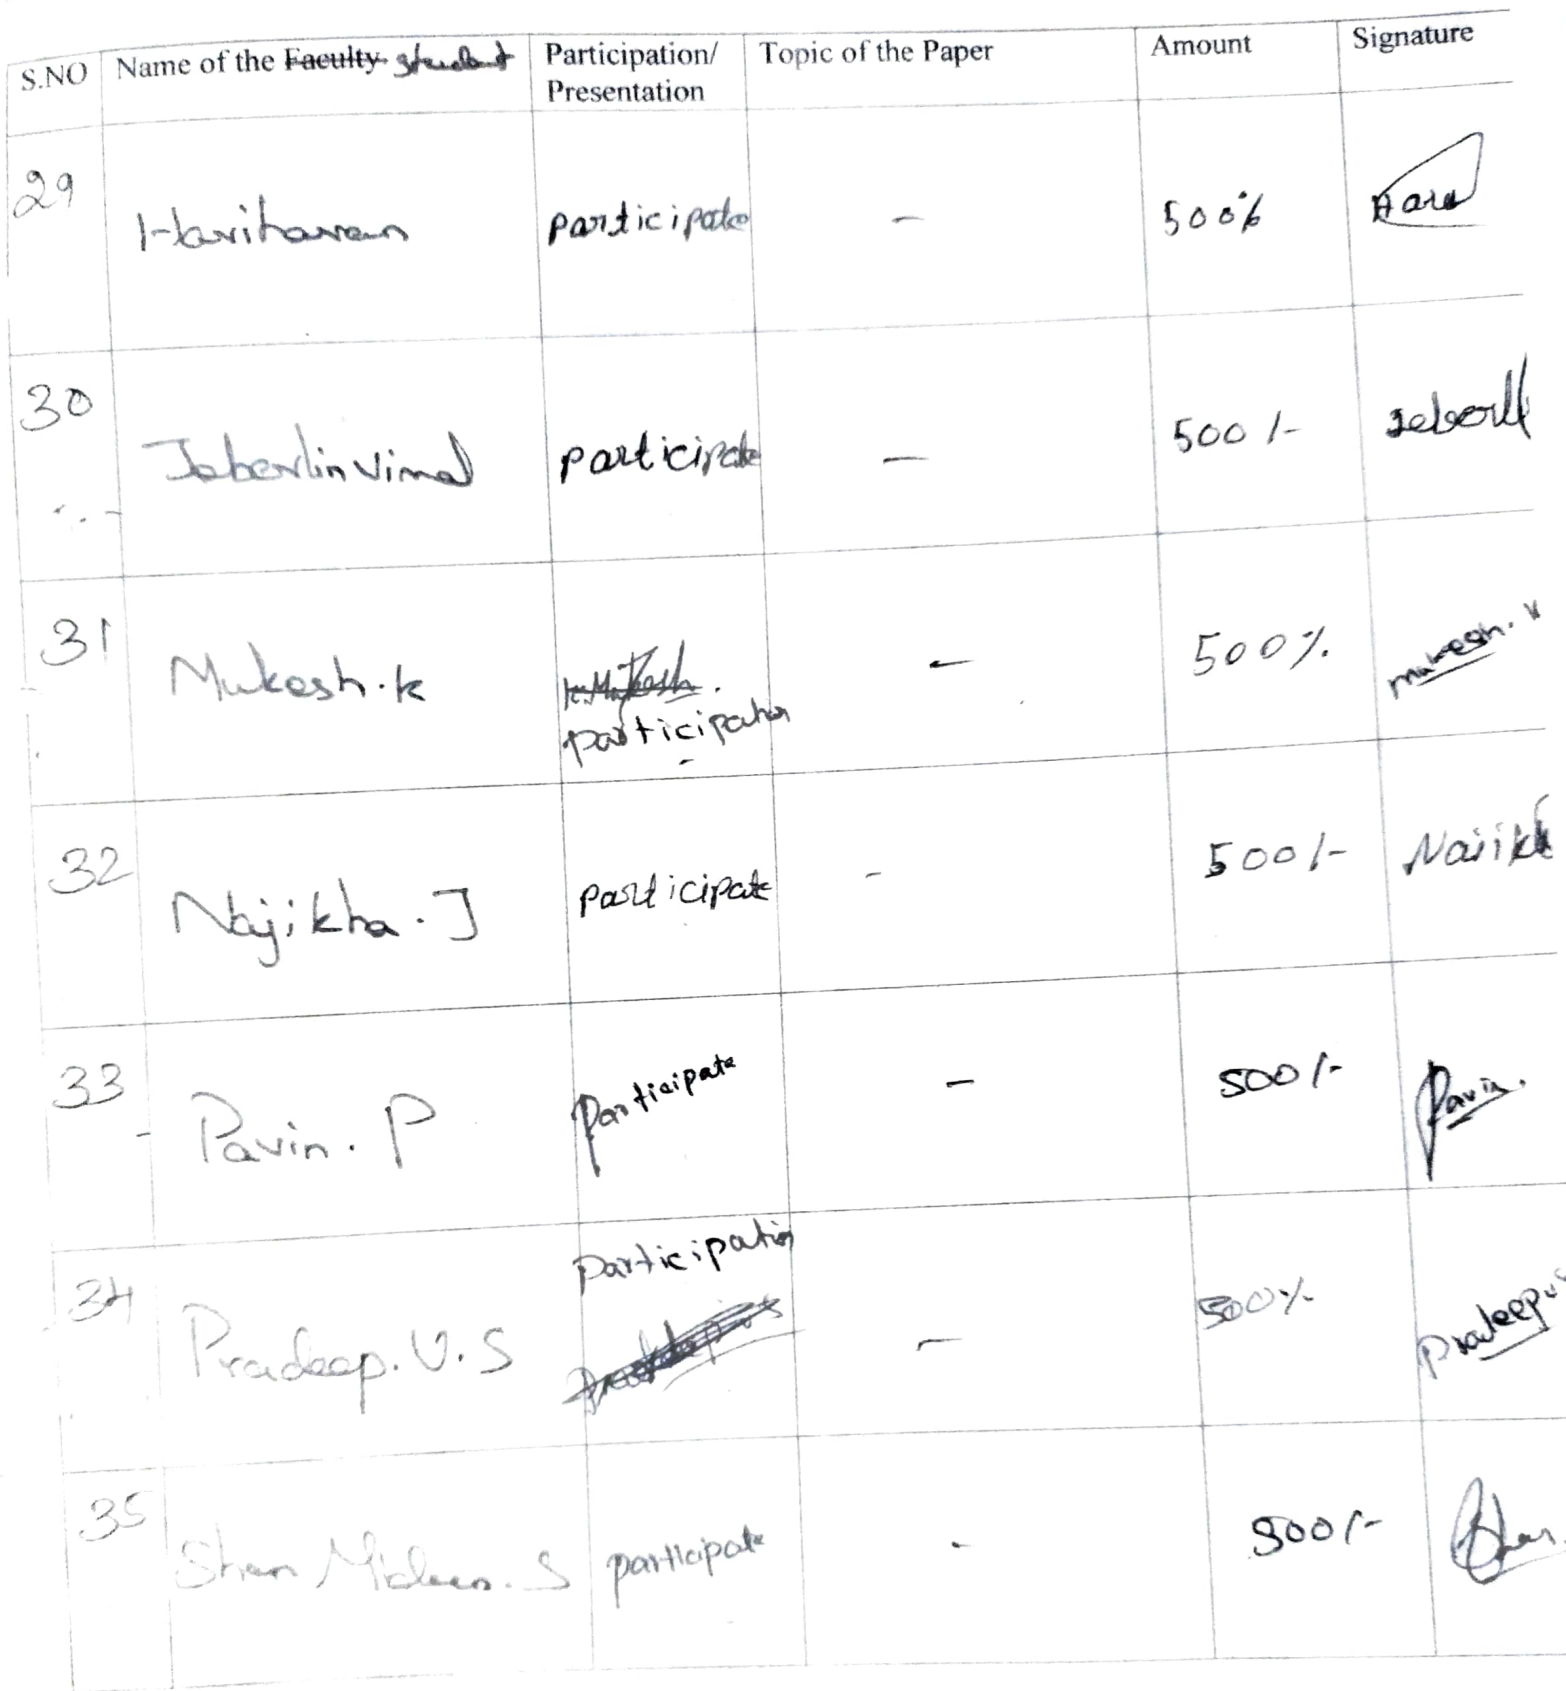 S.NO Name of the Faculty student Participation/ Presentation Topic of the Paper Amount Signature
29 Hariharan participate - 500/- Hara
30 Jeberlin Vimal participate - 500/-
31 Mukesh.k K.Mukesh. participation - 500/- mukesh.k
32 Najikha.J participate - 500/- Najikh
33 Pavin.P Participate - 500/- Pavin.
34 Pradeep.V.S participation - 500/- Pradeep.v.s
35 Participate - 500/-